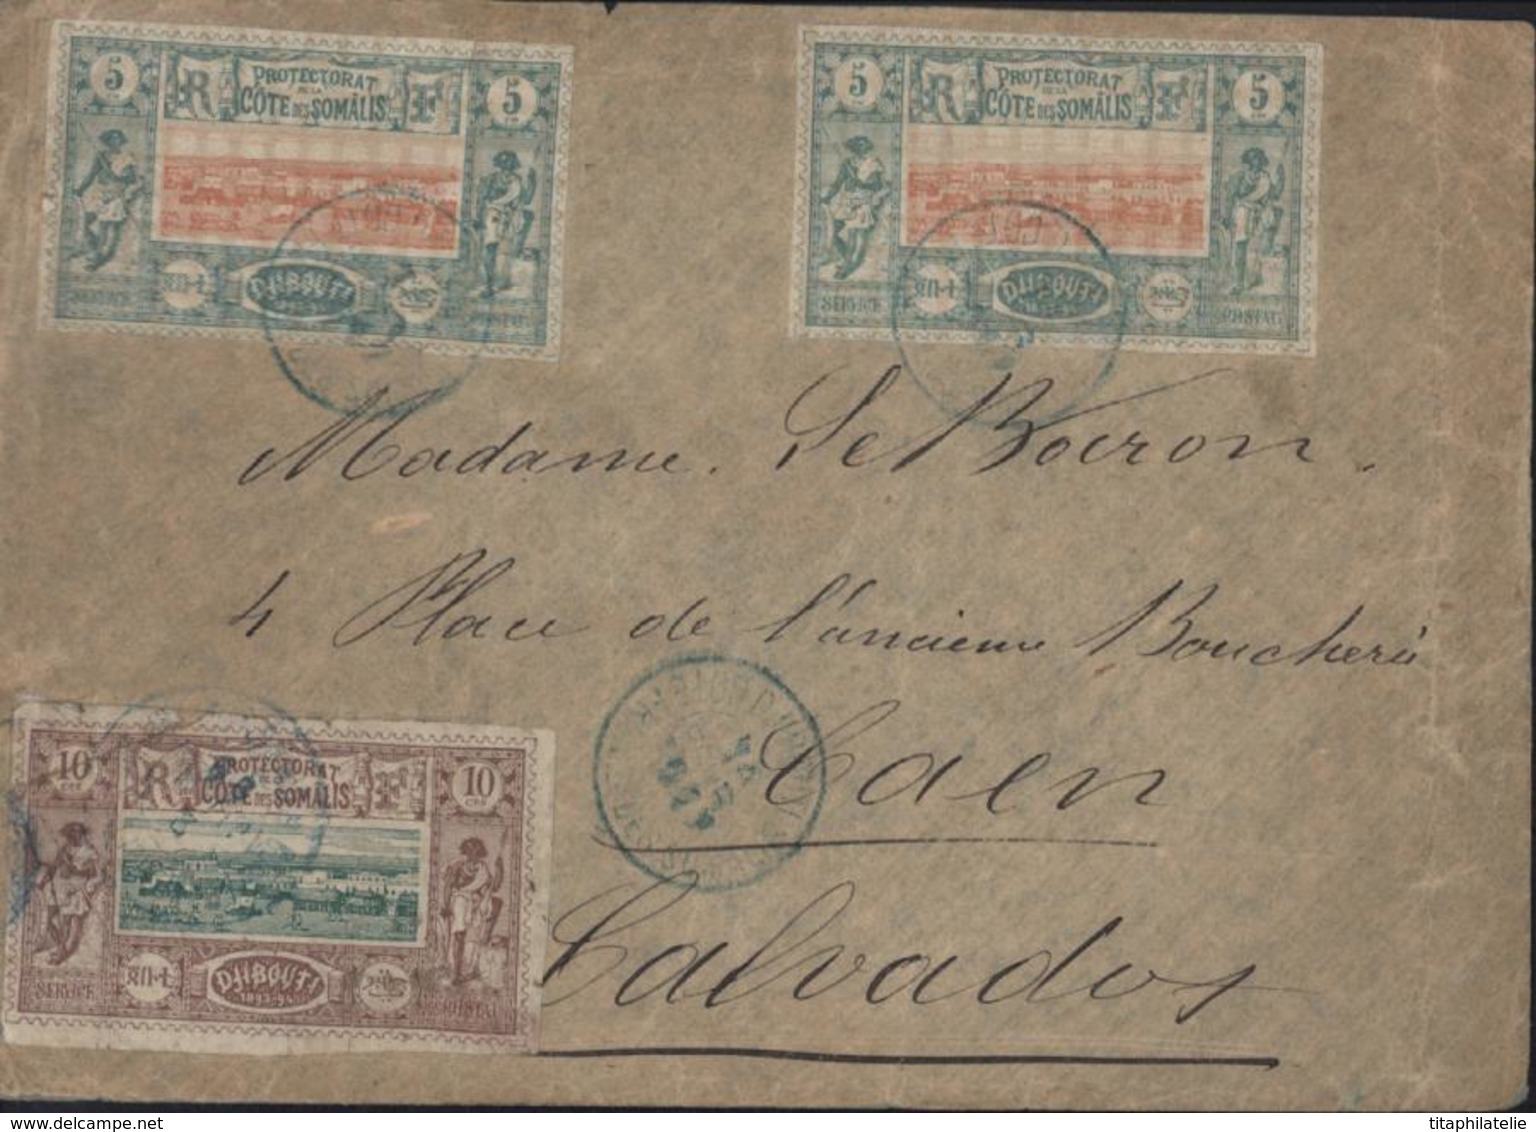 5 R PROTECTORAT DE LA CÔTE DES SOMÂLIS F 5
DJIBOUTI
SERVICE POSTAL
5 R PROTECTORAT DE LA CÔTE DES SOMÂLIS F 5
DJIBOUTI
SERVICE POSTAL
Madame Le Boiron
4 Place de l'ancienne Boucherie
Caen
Calvados
10 R PROTECTORAT DE LA CÔTE DES SOMÂLIS F 10
DJIBOUTI
SERVICE POSTAL
titaphilatelie